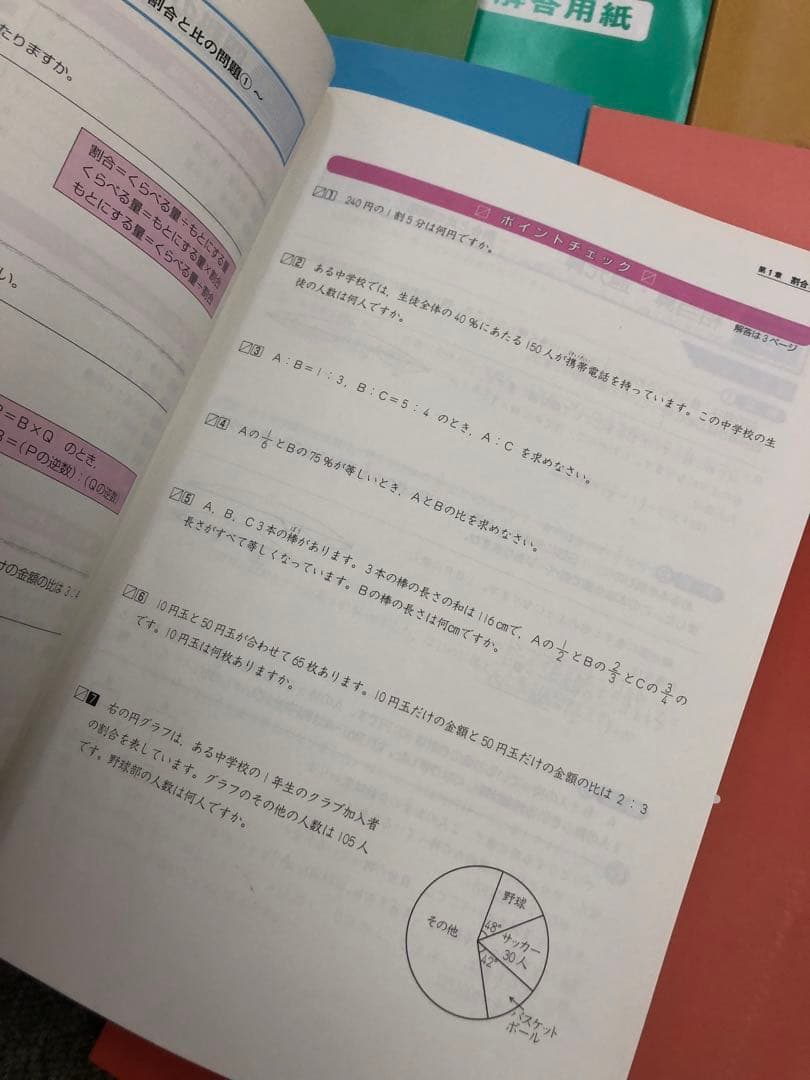 解答用紙
割合と比の問題①～
たりますか。
割合＝くらべる量÷もとにする量
くらべる量＝もとにする量×割合
もとにする量＝くらべる量÷割合
い。
P＝B×Q のとき，
B＝(Pの逆数)：(Qの逆数)
けの金額の比は3：4
第1章 割合
ポイントチェック
解答は3ページ
1 240円の1割5分は何円ですか。
2 ある中学校では，生徒全体の40％にあたる150人が携帯電話を持っています。この中学校の生
徒の人数は何人ですか。
3 A：B＝1：3，B：C＝5：4 のとき，A：C を求めなさい。
4 Aの1/6とBの75％が等しいとき，AとBの比を求めなさい。
5 A，B，C3本の棒があります。3本の棒の長さの和は116cmで，Aの1/2とBの2/3とCの3/4の
長さがすべて等しくなっています。Bの棒の長さは何cmですか。
6 10円玉と50円玉が合わせて65枚あります。10円玉だけの金額と50円玉だけの金額の比は2：3
です。10円玉は何枚ありますか。
7 右の円グラフは，ある中学校の1年生のクラブ加入者
の割合を表しています。グラフのその他の人数は105人
です。野球部の人数は何人ですか。
野球
その他
48°
サッカー
30人
42°
バスケット
ボール